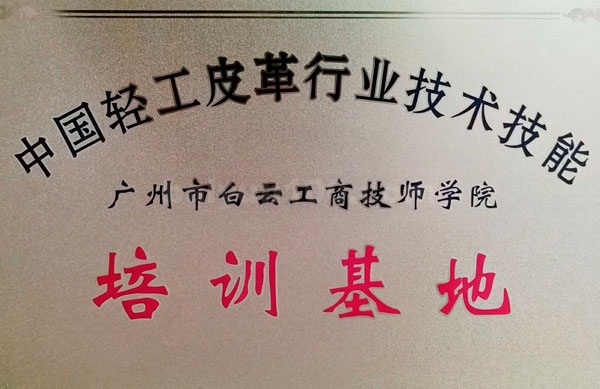 中国轻工皮革行业技术技能
广州市白云工商技师学院
培训基地